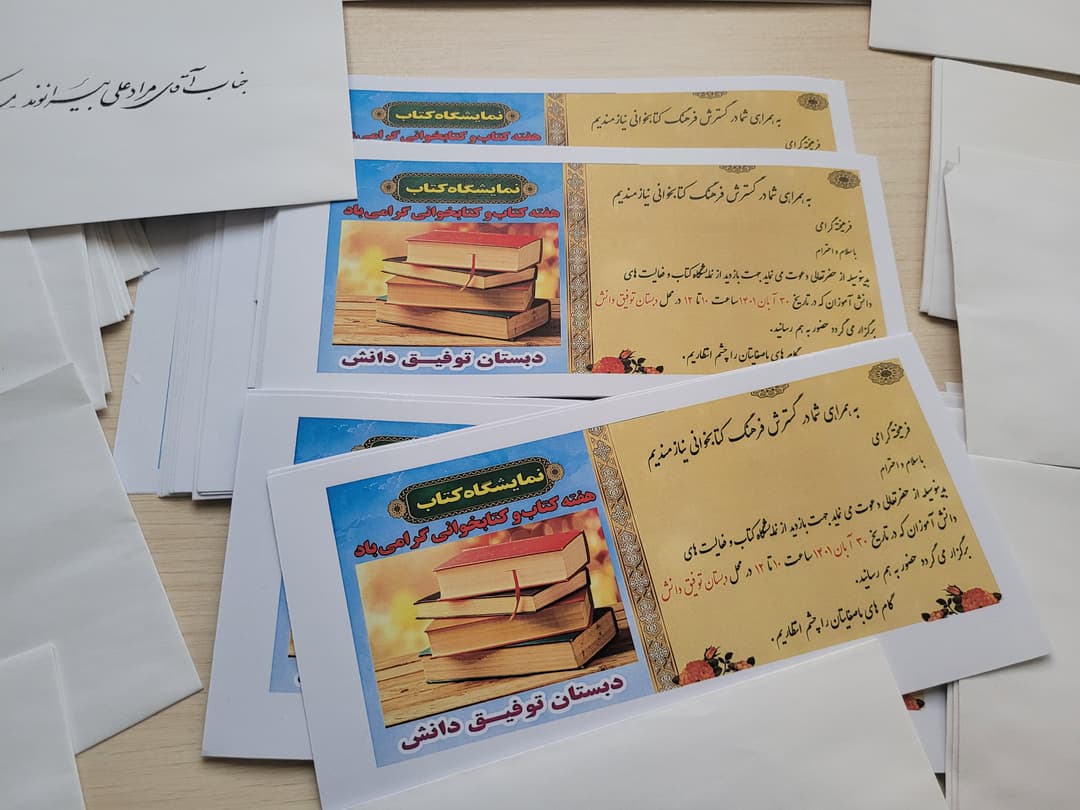 جناب آقای مراد علی بیرانوند
نمایشگاه کتاب
هفته کتاب و کتابخوانی گرامی
به همراهی شما در گسترش فرهنگ کتابخوانی نیازمندیم
فرهیخته گرامی
نمایشگاه کتاب
هفته کتاب و کتابخوانی گرامی باد
دبستان توفیق دانش
به همراهی شما در گسترش فرهنگ کتابخوانی نیازمندیم
فرهیخته گرامی
با سلام و احترام
بدینوسیله از حضرتعالی دعوت می نماید جهت بازدید از نمایشگاه کتاب و فعالیت های
دانش آموزان که در تاریخ ۳۰ آبان ۱۴۰۱ ساعت ۱۰ تا ۱۲ در محل دبستان توفیق دانش
برگزار می گردد حضور به هم رسانید.
گام های باصفایتان را چشم انتظاریم .
نمایشگاه کتاب
هفته کتاب و کتابخوانی گرامی باد
دبستان توفیق دانش
به همراهی شما در گسترش فرهنگ کتابخوانی نیازمندیم
فرهیخته گرامی
با سلام و احترام
بدینوسیله از حضرتعالی دعوت می نماید جهت بازدید از نمایشگاه کتاب و فعالیت های
دانش آموزان که در تاریخ ۳۰ آبان ۱۴۰۱ ساعت ۱۰ تا ۱۲ در محل دبستان توفیق دانش
برگزار می گردد حضور به هم رسانید.
گام های باصفایتان را چشم انتظاریم .